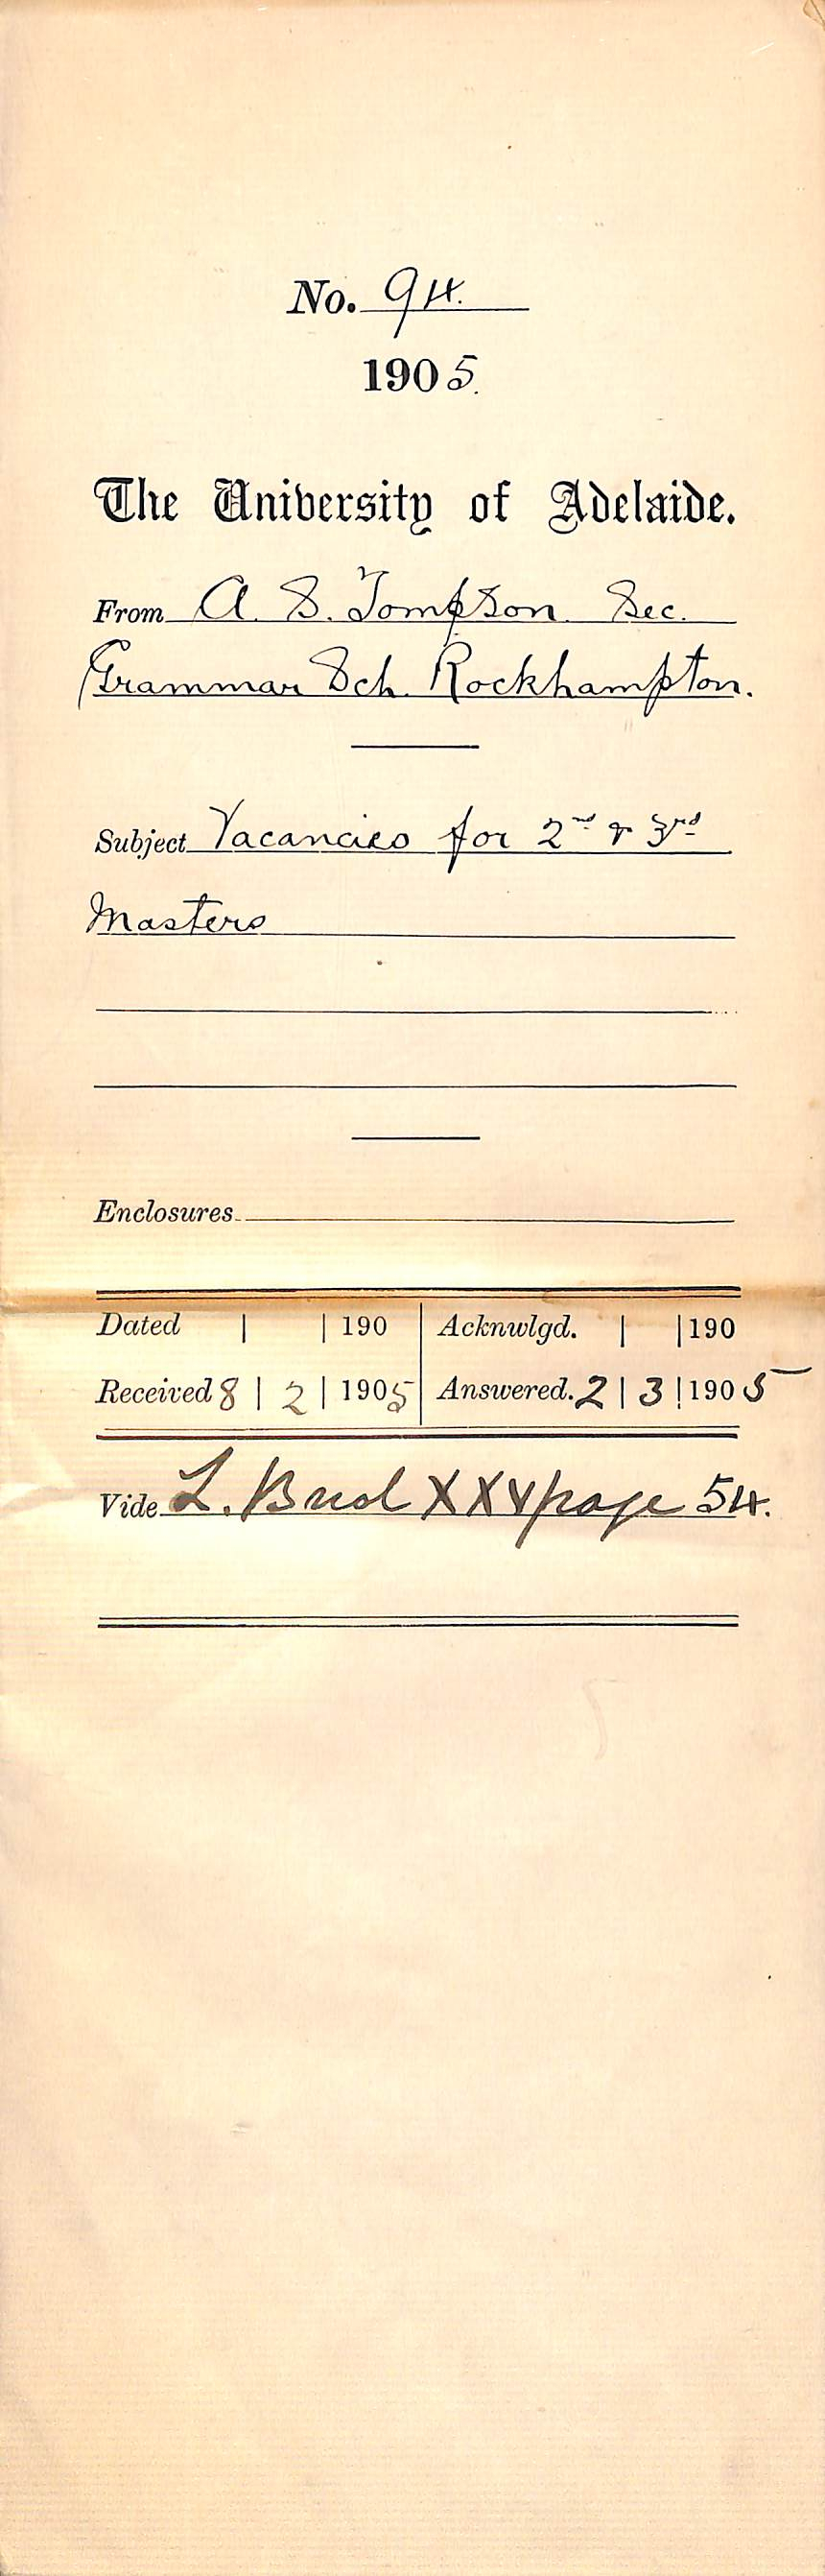 No. 94.
1905.
The University of Adelaide.
From A. S. Tompson. Sec.
Grammar Sch. Rockhampton.
Subject Vacancies for 2nd & 3rd
Masters
Enclosures
Dated | | 190 Acknwlgd. | | 190
Received 8 | 2 | 1905 Answered. 2 | 3 | 1905
Vide L. XXV page 54.